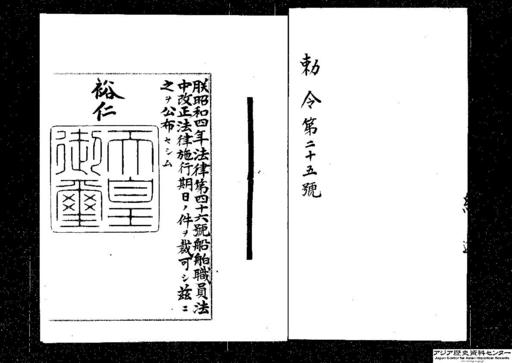 勅令第二十五號
朕昭和四年法律第四十六號船舶職員法
中改正法律施行期日ノ件ヲ裁可シ茲ニ
之ヲ公布セシム
裕仁
天皇
御璽
アジア歴史資料センター
Japan Center for Asian Historical Records